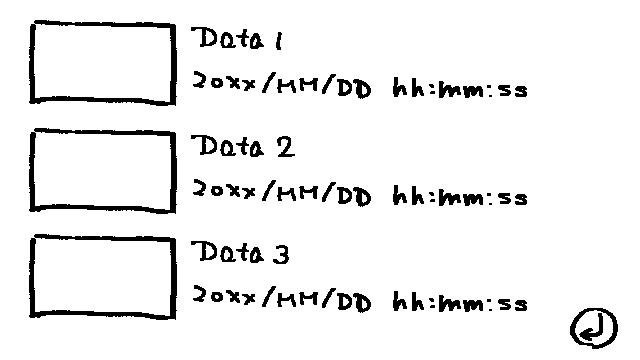 Data 1
20xx/MM/DD hh:mm:ss
Data 2
20xx/MM/DD hh:mm:ss
Data 3
20xx/MM/DD hh:mm:ss